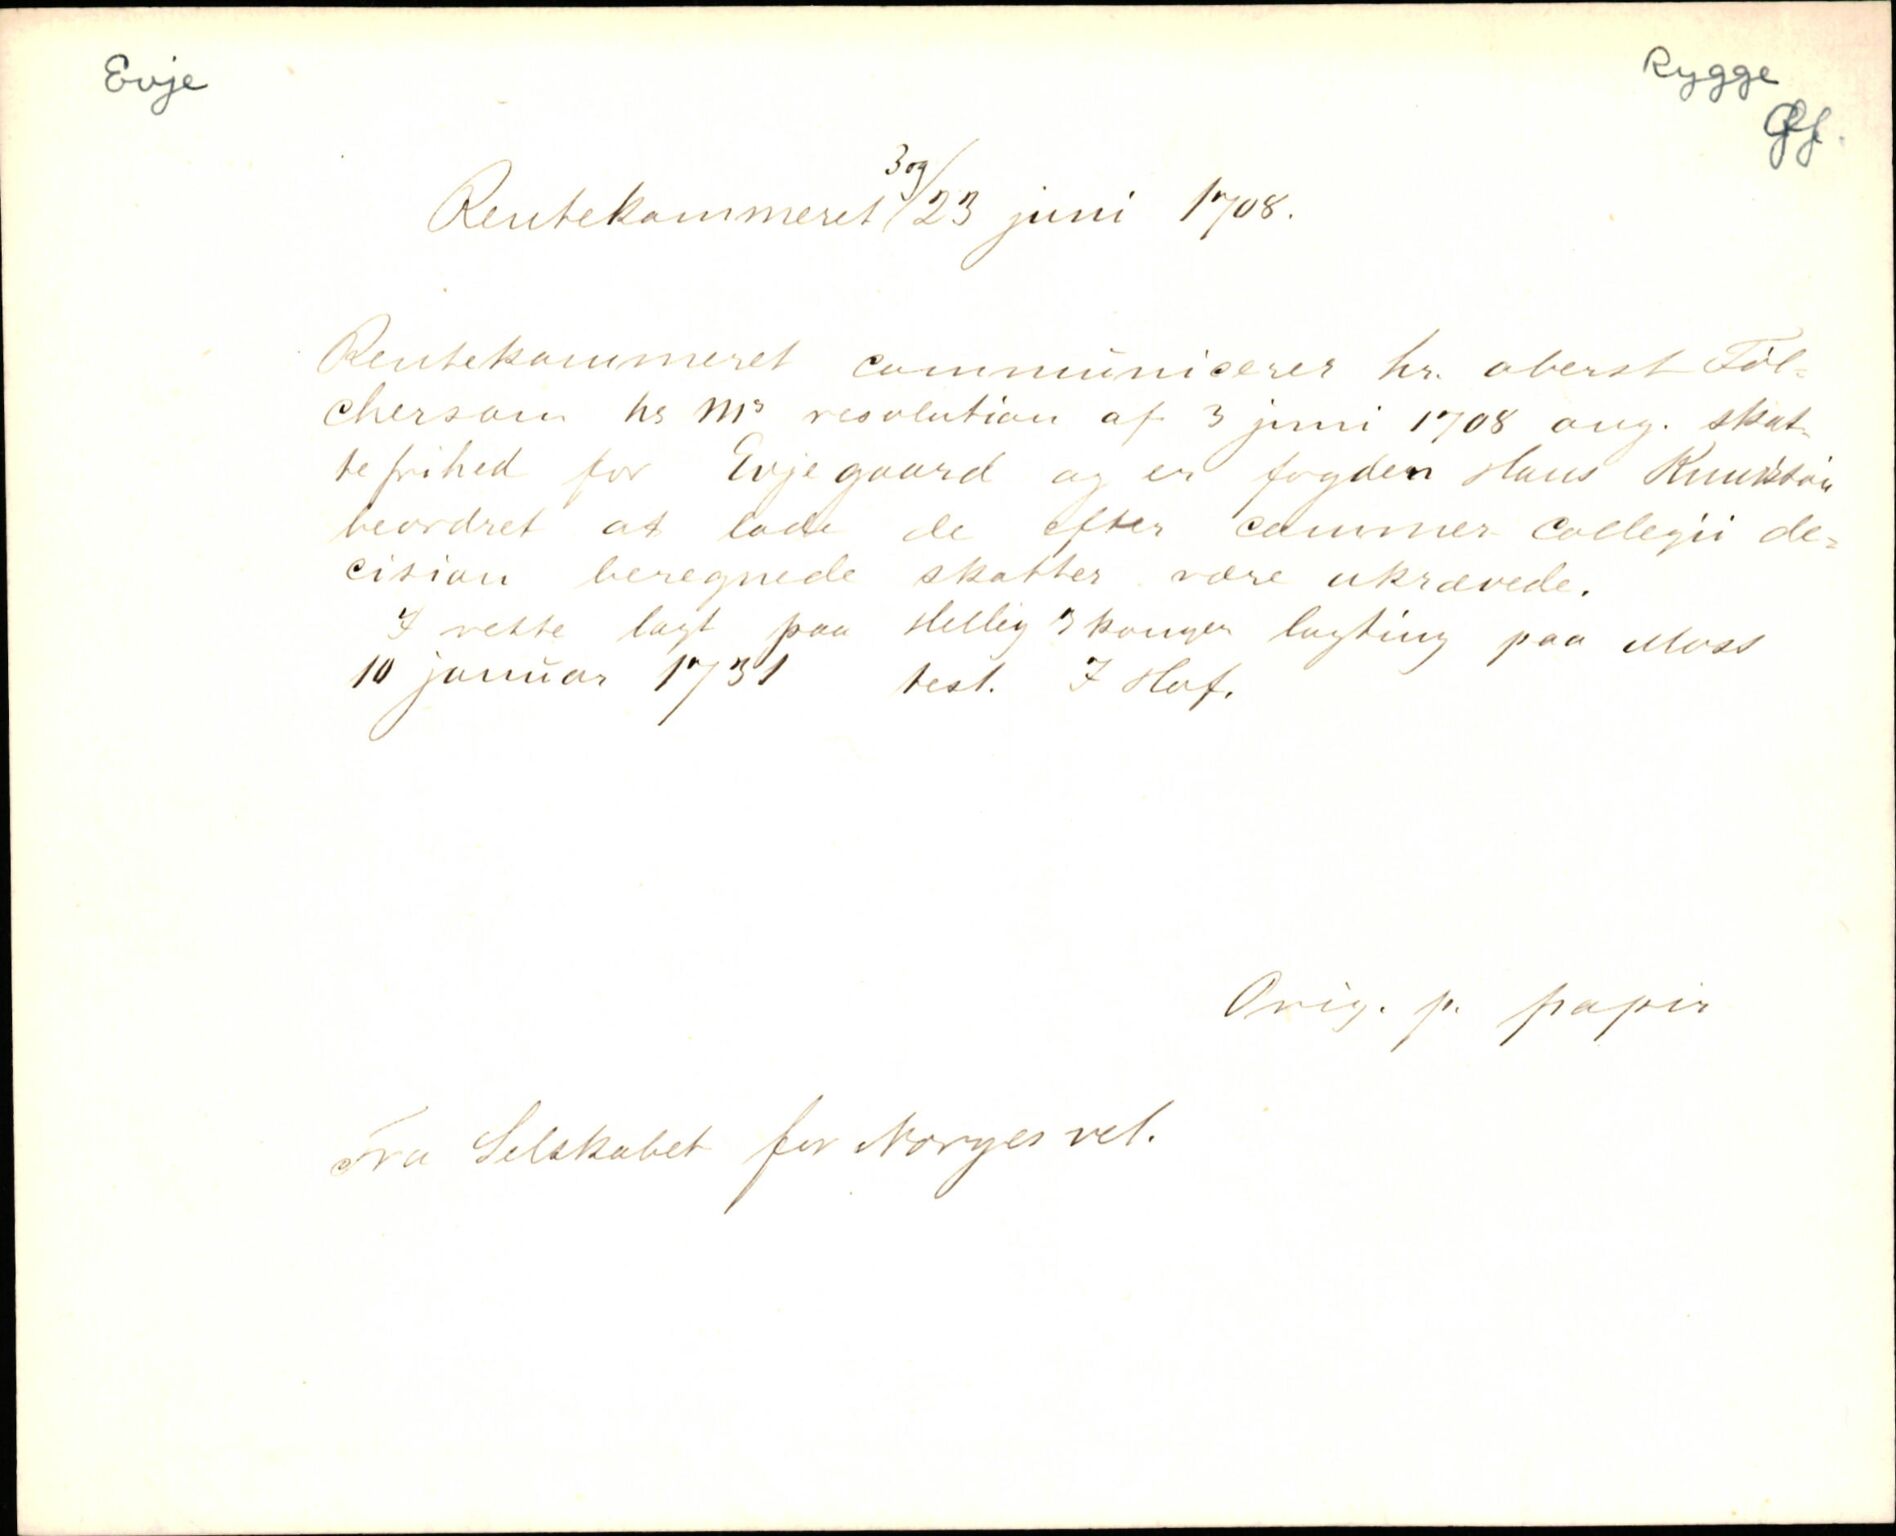 Evje
Rygge
Rentekammeret 3 og/23 juni 1708.
Rentekammeret communicerer hr. oberst Töl-
cherson hs Ms resolution af 3 juni 1708 ang. skat-
tefrihed for Evje gaard og er fogden Hans
beordret at lade de efter cammer collegii de-
cision beregnede skatter være ukrævede.
I rette lagt paa Hellig 3 konger lagting paa Moss
10 januar 1731 test. I Hof.
Orig. p. papir
Fra Selskabet for Norges vel.